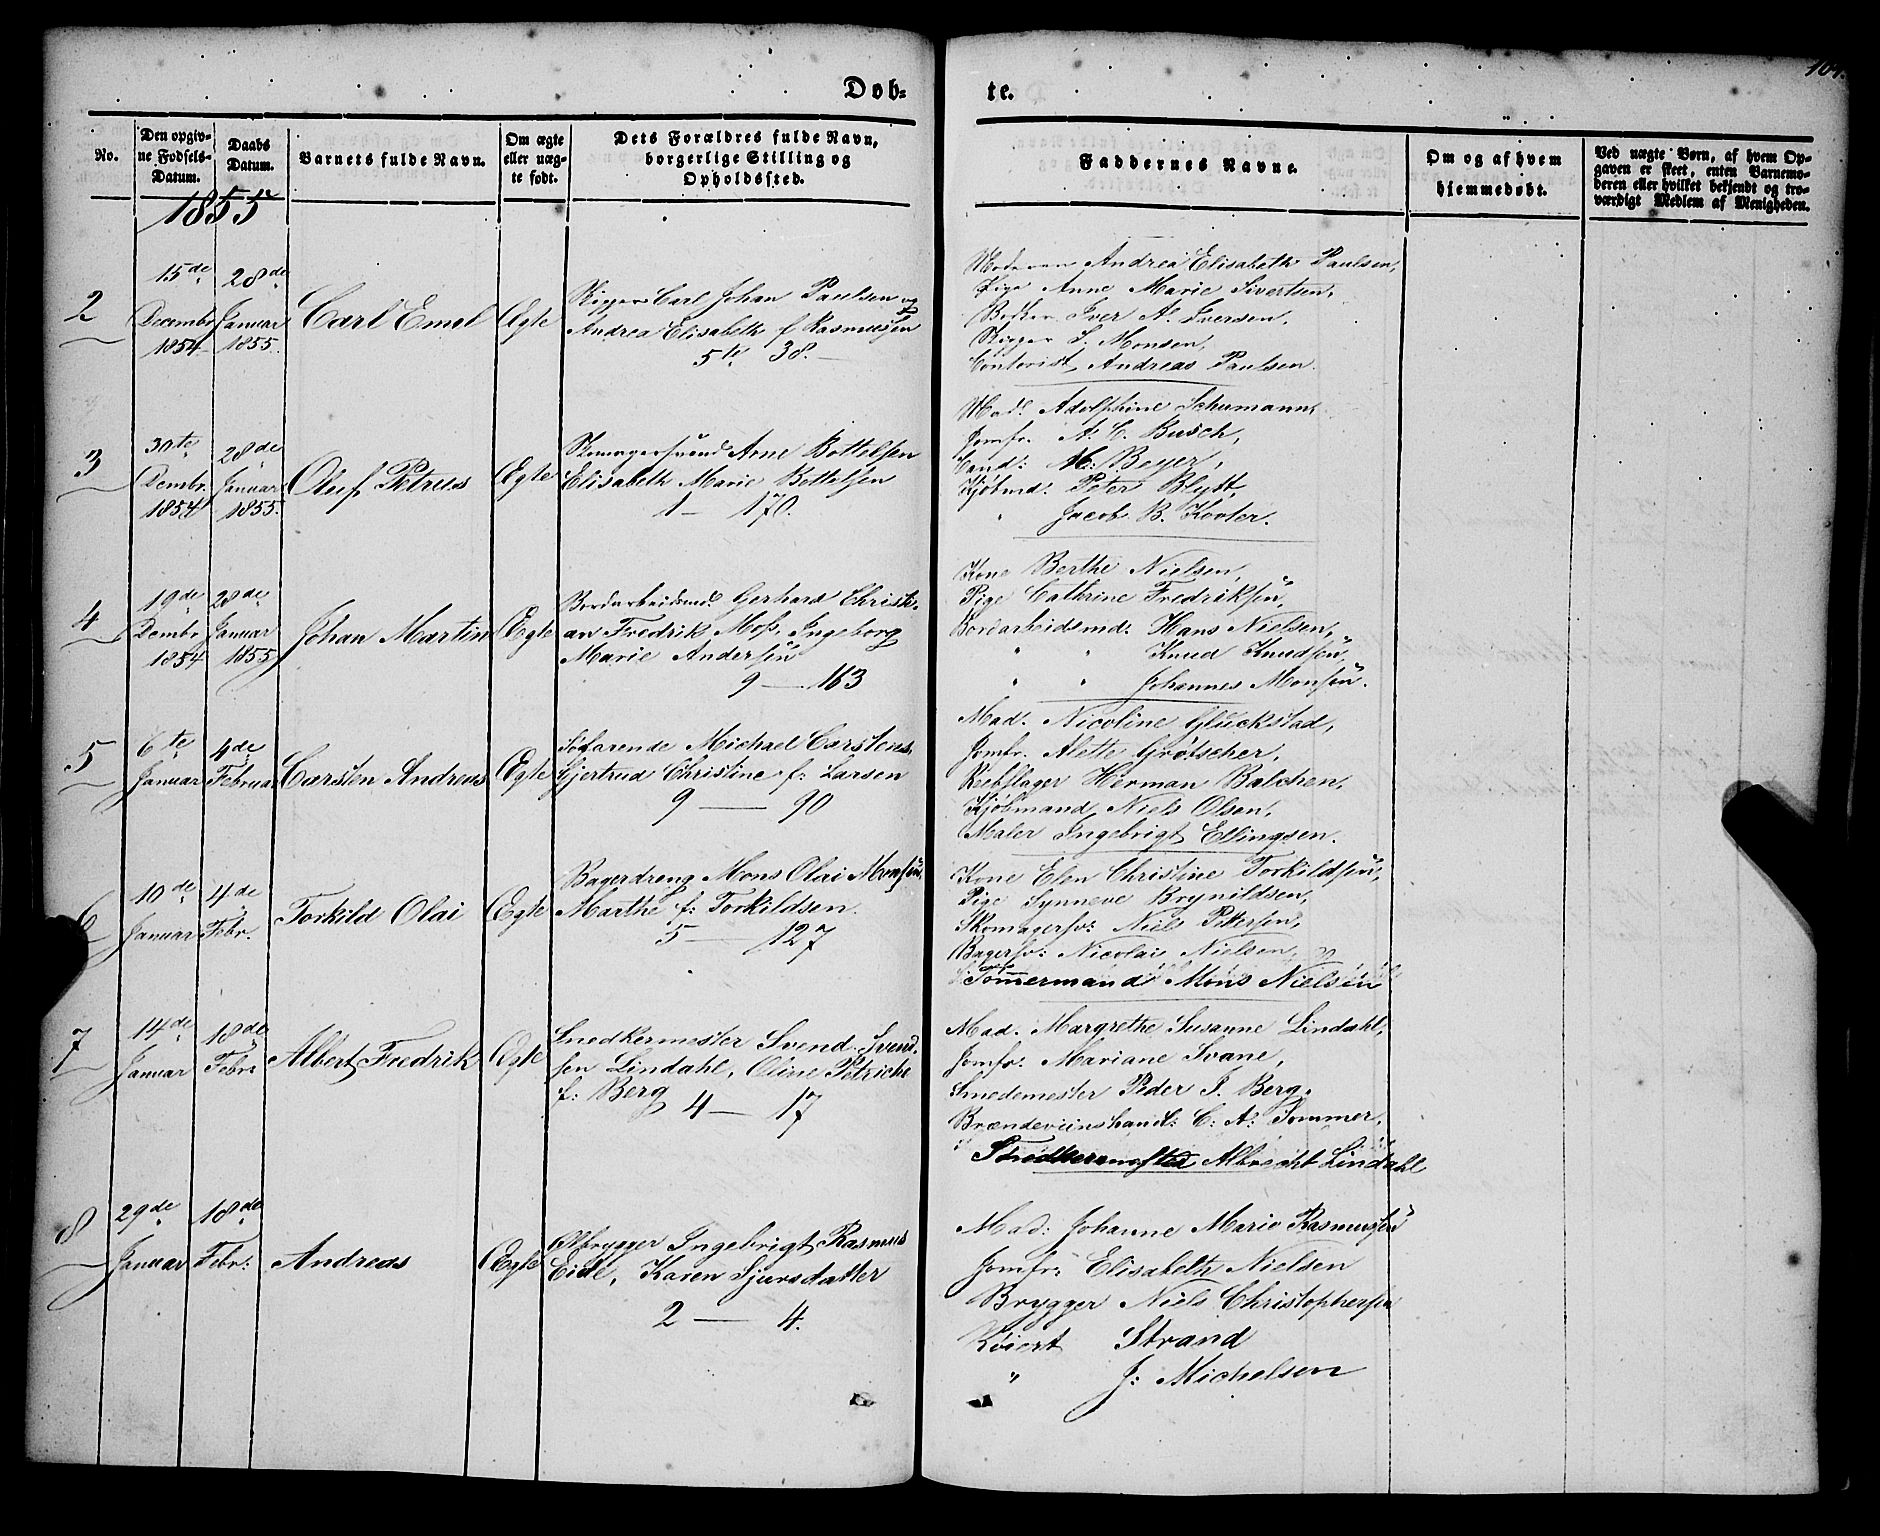 Døb-
te.
164.
No.
Den opgiv-
ne Fødsels-
Datum.
Daabs
Datum.
Barnets fulde Navn.
Om ægte
eller uæg-
te født.
Dets Forældres fulde Navn,
borgerlige Stilling og
Opholdssted.
Faddernes Navne.
Om og af hvem
hjemmedøbt.
Ved uægte Børn, af hvem Op-
gaven er skeet, enten Barnemo-
deren eller hvilket bekjendt og tro-
værdigt Medlem af Menigheden.
1855
2
15de
Decembr
1854
28de
Januar
1855.
Carl Emil
Ægte
Rigger Carl Johan Paulsen og
Andrea Elisabeth f Rasmussen
5te 38.
Moderen Andrea Elisabeth Paulsen,
Pige Anne Marie Sivertsen,
Bøtker Iver A. Iversen,
Rigger S. Monsen,
Contorist Andreas Paulsen.
3
30te
Dembr.
1854
28de
Januar
1855.
Oluf Petrus
Ægte
Skomagersvend Arne Bottelsen
Elisabeth Marie Bottelsen
1 — 170.
Mad. Adolphine Schumann,
Jomfr. A. C. Busch,
Cand: M: Beyer,
Kjøbmd. Peter Blytt,
" Jacob B. Koster.
4
19de
Dembr
1854
28de
Januar
1855
Johan Martin
Ægte
Bordarbeidsmd. Gerhard Christi-
an Fredrik Moss, Ingeborg
Marie Andersen
9 — 163
Kone Berthe Nielsen,
Pige Cathrine Fredriksen,
Bordarbeidsmd. Hans Nielsen,
" " Knud Knudsen,
" " Johannes Monsen.
5
6te
Januar
4de
Februar
Carsten Andreas
Ægte
Søfarende Michael Carstens,
Gjertrud Christine f: Larsen
9 — 90
Mad. Nicoline Gluckstad,
Jomfr. Alette Grøtscher,
Reebslager Herman Balchen,
Kjøbmand Niels Olsen,
Maler Ingebrigt Ellingsen.
6
10de
Januar
4de
Febr.
Torkild Olai
Ægte
Bagerdreng Mons Olai Monsen,
Marthe f: Torkildsen.
5 — 127
Kone Elen Christine Torkildsen,
Pige Synneve Brynildsen,
Skomagersv: Niels Pettersen,
Bagersv: Nicolai Nielsen,
Tømmermand Mons Nielsen
7
14de
Januar
18de
Febr
Albert Fredrik
Ægte
Snedkermester Svend Svend-
sen Lindahl, Oline Petriche
f: Berg
4 — 17
Mad. Margrethe Susanne Lindahl,
Jomfr: Mariane Svane,
Smedemester Peder S. Berg,
Brændeviinshandl: C: A: Sommer,
Snedkermester Albrecht Lindahl
8
29de
Januar
18de
Febr:
Andreas
Ægte
Ølbrygger Ingebrigt Rasmus
Eide, Karen Sjursdatter
2 — 4.
Mad: Johanne Marie Rasmussen
Jomfr: Elisabeth Nielsen
Brygger Niels Christophersen
Strand
" J: Michelsen